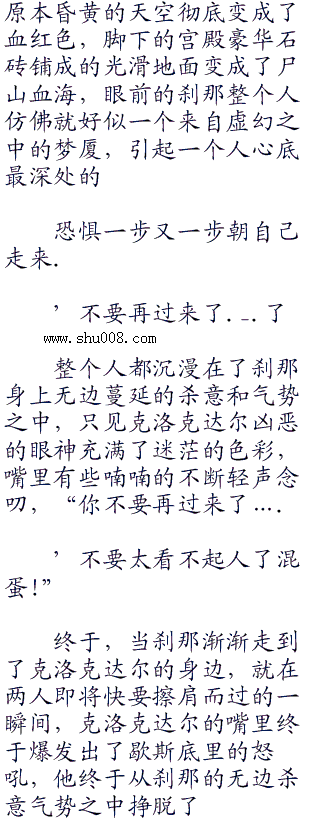 原本昏黄的天空彻底变成了
血红色，脚下的宫殿豪华石
砖铺成的光滑地面变成了尸
山血海，眼前的刹那整个人
仿佛就好似一个来自虚幻之
中的梦厦，引起一个人心底
最深处的
恐惧一步又一步朝自己
走来.
’不要再过来了. _. 了
www.shu008.com
整个人都沉漫在了刹那
身上无边蔓延的杀意和气势
之中，只见克洛克达尔凶恶
的眼神充满了迷茫的色彩，
嘴里有些喃喃的不断轻声念
叨，“你不要再过来了….
’不要太看不起人了混
蛋!”
终于，当刹那渐渐走到
了克洛克达尔的身边，就在
两人即将快要擦肩而过的一
瞬间，克洛克达尔的嘴里终
于爆发出了歇斯底里的怒
吼，他终于从刹那的无边杀
意气势之中挣脱了